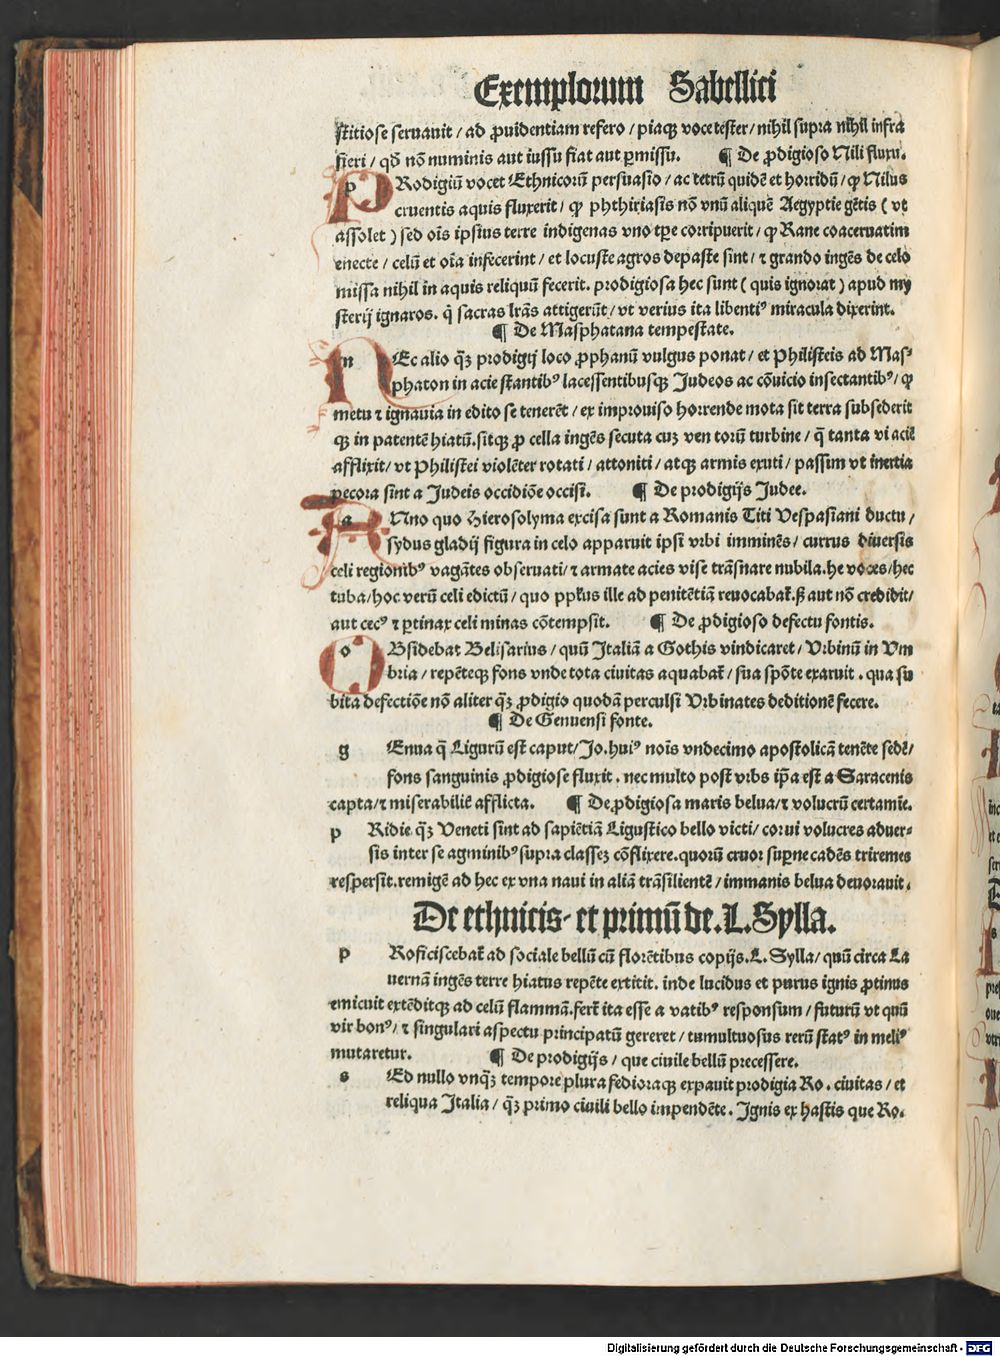 Exemplorum Sabellici
stitiose seruauit / ad ꝓuidentiam refero / piaqꝫ voce tester / nihil supra nihil infra
fieri / qđ nõ numinis aut iussu fiat aut ꝑmissu. ¶ De ꝓdigioso Nili fluxu.
p Rodigiũ vocet Ethnicorũ persuasio / ac tetrũ quidẽ et horridũ / ꝙ Nilus
cruentis aquis fluxerit / ꝙ phthiriasis nõ vnũ aliquẽ Aegyptie gẽtis ( vt
assolet ) sed oĩs ipsius terre indigenas vno tꝑe corripuerit / ꝙ Rane coaceruatim
enecte / celũ et oĩa infecerint / et locuste agros depaste sint / ⁊ grando ingẽs de celo
missa nihil in aquis reliquũ fecerit. prodigiosa hec sunt ( quis ignorat ) apud my
sterij ignaros. q̃ sacras lr̃as attigerũt / vt verius ita libentiꝰ miracula dixerint.
¶ De Masphatana tempestate.
n Ec alio q̃ꝫ prodigij loco ꝓphanũ vulgus ponat / et Philisteis ad Mas⸗
phaton in acie stantibꝰ lacessentibusqꝫ Judeos ac cõuicio insectantibꝰ / ꝙ
metu ⁊ ignauia in edito se tenerẽt / ex improuiso horrende mota sit terra subsederit
qꝫ in patentẽ hiatũ. sitqꝫ ꝓ cella ingẽs secuta cuꝫ ven torũ turbine / q̃ tanta vi aciẽ
afflixit / vt Philistei violẽter rotati / attoniti / atqꝫ armis exuti / passim vt inertia
pecora sint a Judeis occidiõe occisi. ¶ De prodigijs Judee.
a Nno quo Hierosolyma excisa sunt a Romanis Titi Vespasiani ductu /
sydus gladij figura in celo apparuit ipsi vrbi imminẽs / currus diuersis
celi regionibꝰ vagãtes obseruati / ⁊ armate acies vise trãsnare nubila. he voces / hec
tuba / hoc verũ celi edictũ / quo ppłus ille ad penitẽtiã reuocabat̃. ß aut nõ credidit /
aut cecꝰ ⁊ ꝑtinax celi minas cõtempsit. ¶ De ꝓdigioso defectu fontis.
o Bsidebat Belisarius / quũ Italiã a Gothis vindicaret / Vrbinũ in Vm
bria / repẽteqꝫ fons vnde tota ciuitas aquabat̃ / sua spõte exaruit . qua su
bita defectiõe nõ aliter q̃ꝫ ꝓdigio quodã perculsi Vrbinates deditionẽ fecere.
¶ De Genuensi fonte.
g Enua q̃ Ligurũ est caput / Jo. huiꝰ noĩs vndecimo apostolicã tenẽte sedẽ /
fons sanguinis ꝓdigiose fluxit . nec multo post vrbs ip̃a est a Saracenis
capta / ⁊ miserabiliẽ afflicta. ¶ De ꝓdigiosa maris belua / ⁊ volucrũ certamĩe.
p Ridie q̃ꝫ Veneti sint ad sapiẽtiã Ligustico bello victi / corui volucres aduer⸗
sis inter se agminibꝰ supra classeꝫ cõflixere. quorũ cruor supꝰne cadẽs triremes
respersit. remigẽ ad hec ex vna naui in aliã trãsilientẽ / immanis belua deuorauit.
De ethnicis⸗ et primũ de. L. Sylla.
p Roficiscebat̃ ad sociale bellũ cũ florẽtibus copijs. L. Sylla / quũ circa La
uernã ingẽs terre hiatus repẽte extitit. inde lucidus et purus ignis ꝓtinus
emicuit extẽditqꝫ ad celũ flammã. fert̃ ita esse a vatibꝰ responsum / futurũ vt quũ
vir bonꝰ / ⁊ singulari aspectu principatũ gereret / tumultuosus rerũ statꝰ in meliꝰ
mutaretur. ¶ De prodigijs / que ciuile bellũ precessere.
s Ed nullo vnq̃ꝫ tempore plura fedioraqꝫ expauit prodigia Ro. ciuitas / et
reliqua Italia / q̃ꝫ primo ciuili bello impendẽte. Ignis ex hastis que Ro.
Digitalisierung gefördert durch die Deutsche Forschungsgemeinschaft - DFG